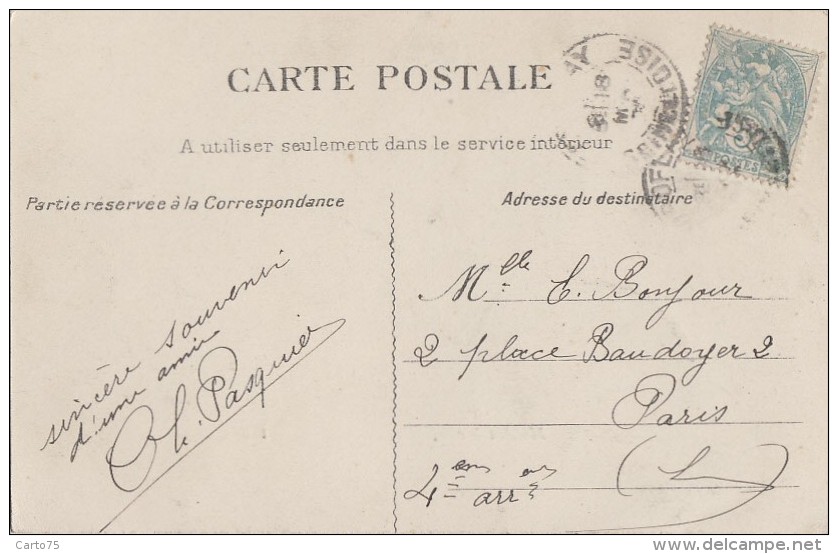 CARTE POSTALE
A utiliser seulement dans le service intérieur
Partie réservée à la Correspondance
Adresse du destinataire
sincère souvenir
d'une amie
Ch. Pasquier
Mlle E. Bonjour
2 place Baudoyer 2
Paris
4em arrt
Carto75
www.delcampe.net